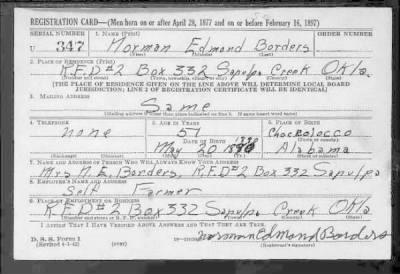 REGISTRATION CARD—(Men born on or after April 28, 1877 and on or before February 16, 1897)
SERIAL NUMBER 1. NAME (Print) ORDER NUMBER
U 347 Norman Edmond Borders
2. PLACE OF RESIDENCE (Print)
R.F.D#2 Box 332 Sapulpa Creek Okla.
[THE PLACE OF RESIDENCE GIVEN ON THE LINE ABOVE WILL DETERMINE LOCAL BOARD
JURISDICTION; LINE 2 OF REGISTRATION CERTIFICATE WILL BE IDENTICAL]
3. MAILING ADDRESS
Same
[Mailing address if other than place indicated on line 2. If same insert word same]
4. TELEPHONE 5. AGE IN YEARS 6. PLACE OF BIRTH
none 51 Chockolocco
DATE OF BIRTH
May 20 1890 Alabama
(Exchange) (Number) (Mo.) (Day) (Yr.) (State or country)
7. NAME AND ADDRESS OF PERSON WHO WILL ALWAYS KNOW YOUR ADDRESS
Mrs M.E. Borders, R.F.D#2 Box 332 Sapulpa
8. EMPLOYER'S NAME AND ADDRESS
Self Farmer
9. PLACE OF EMPLOYMENT OR BUSINESS
R.F.D#2 Box 332 Sapulpa Creek Okla
I AFFIRM THAT I HAVE VERIFIED ABOVE ANSWERS AND THAT THEY ARE TRUE.
D. S. S. Form 1
(Revised 4-1-42) (over) Norman Edmond Borders
(Registrant's signature)